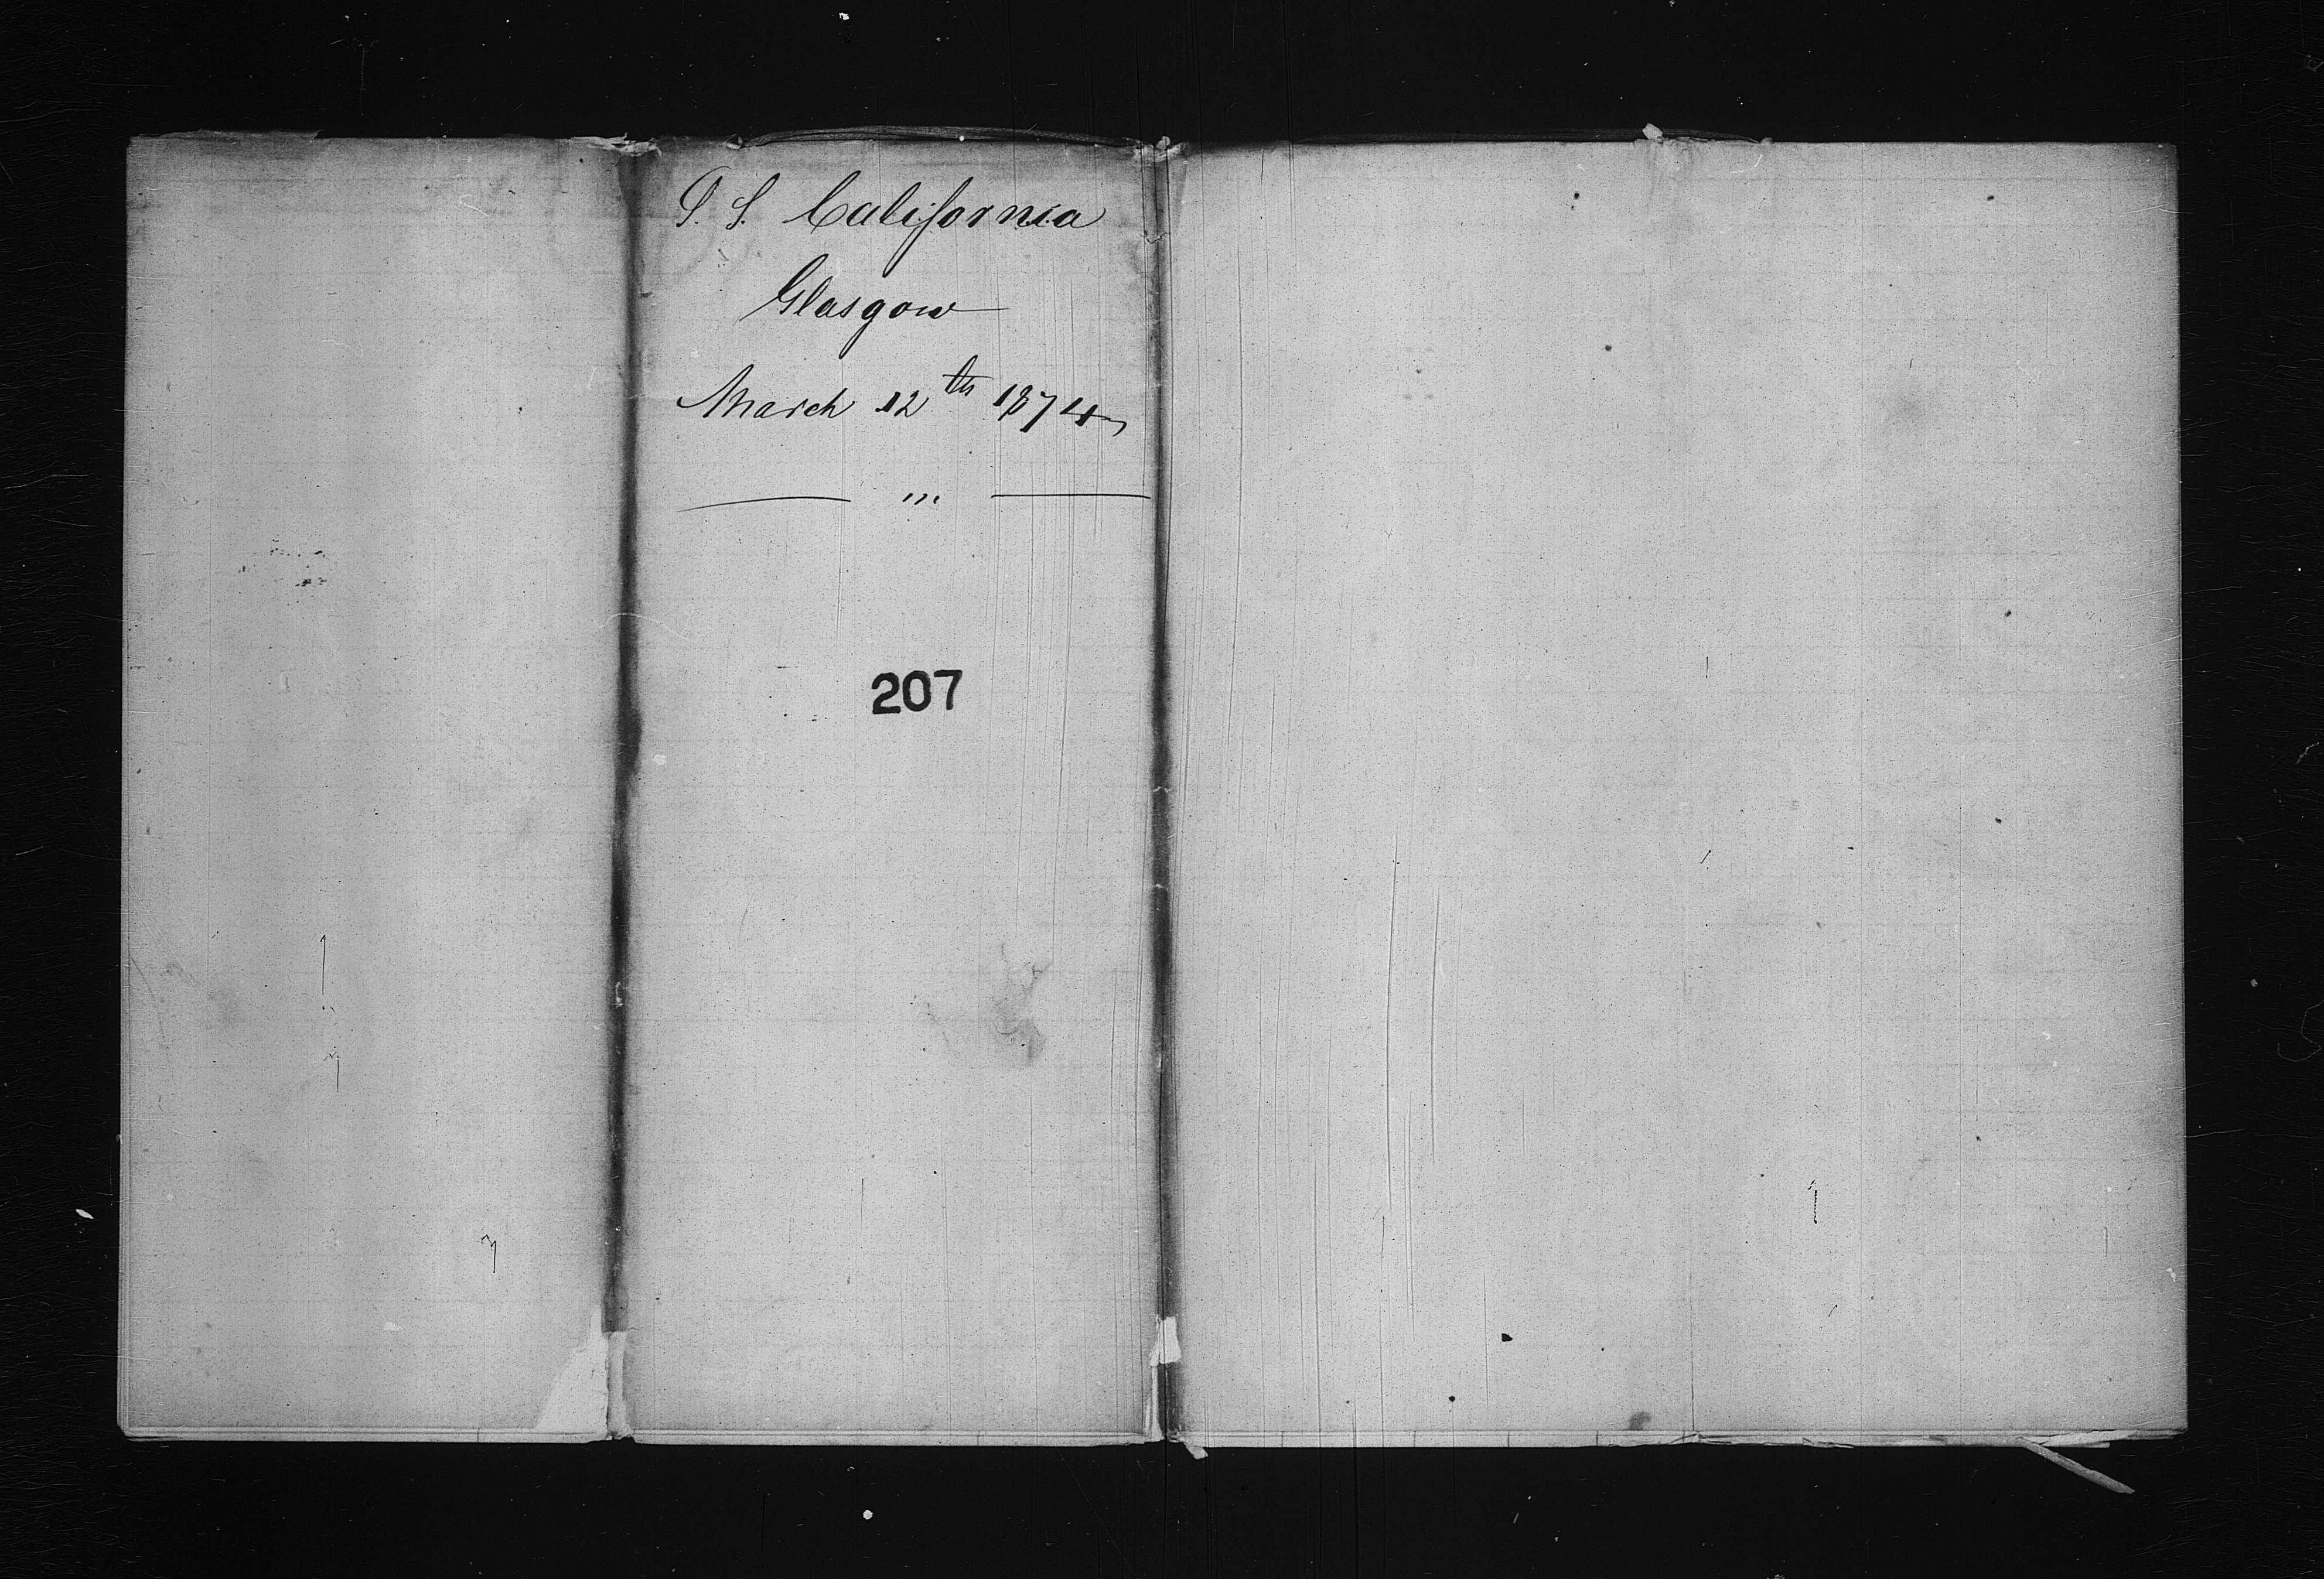 S. S. California
Glasgow
March 12th 1874
— ,,, —
207